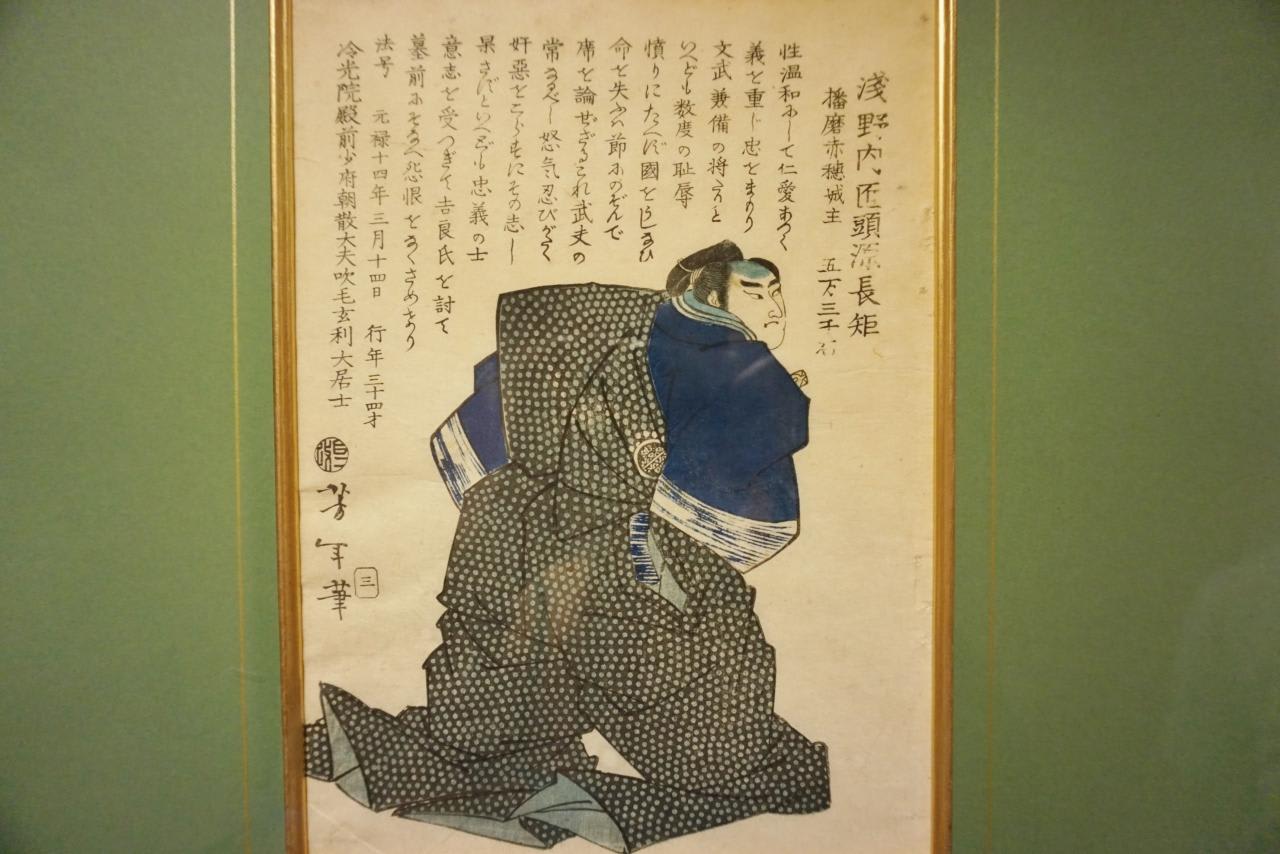 淺野内匠頭源長矩
播磨赤穂城主 五万三千石
性温和にして仁愛あつく
義を重じ忠をまもり
文武兼備の将たりと
いへども数度の恥辱
憤りにたへず國を
命を失ふの節にのぞんで
席を論ぜざるこれ武夫の
常なるべし怒気忍びがたく
奸惡をこらすにその志し
果さずといへども忠義の士
意志を受つぎて吉良氏を討て
墓前にそなへ怨恨をなくさめたり
法号 元禄十四年三月十四日 行年三十四才
冷光院殿前少府朝散大夫吹毛玄利大居士
芳年筆
三